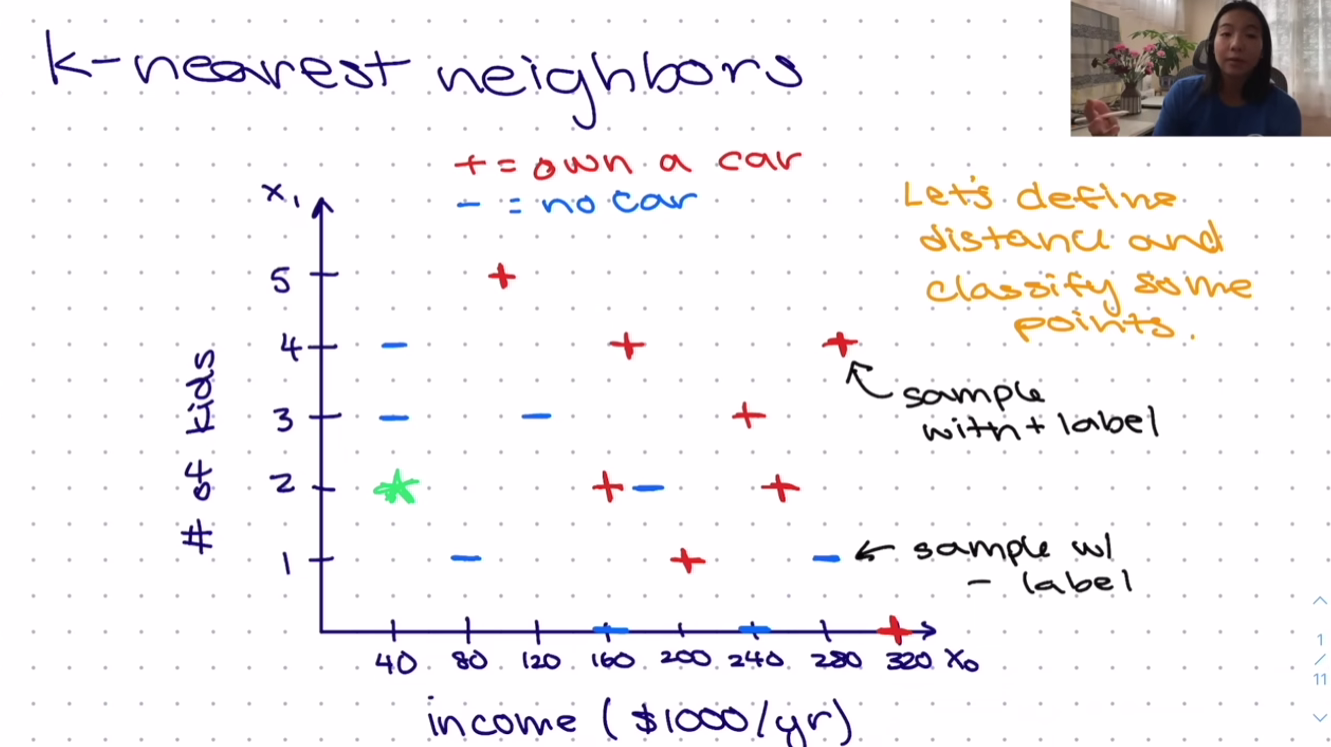 k-nearest neighbors
+ = own a car
- = no car
Let's define
distance and
classify some
points.
x₁
5
4
3
2
1
# of kids
sample
with + label
sample w/
- label
40 80 120 160 200 240 280 320 x₀
income ($1000/yr)
1
/
11